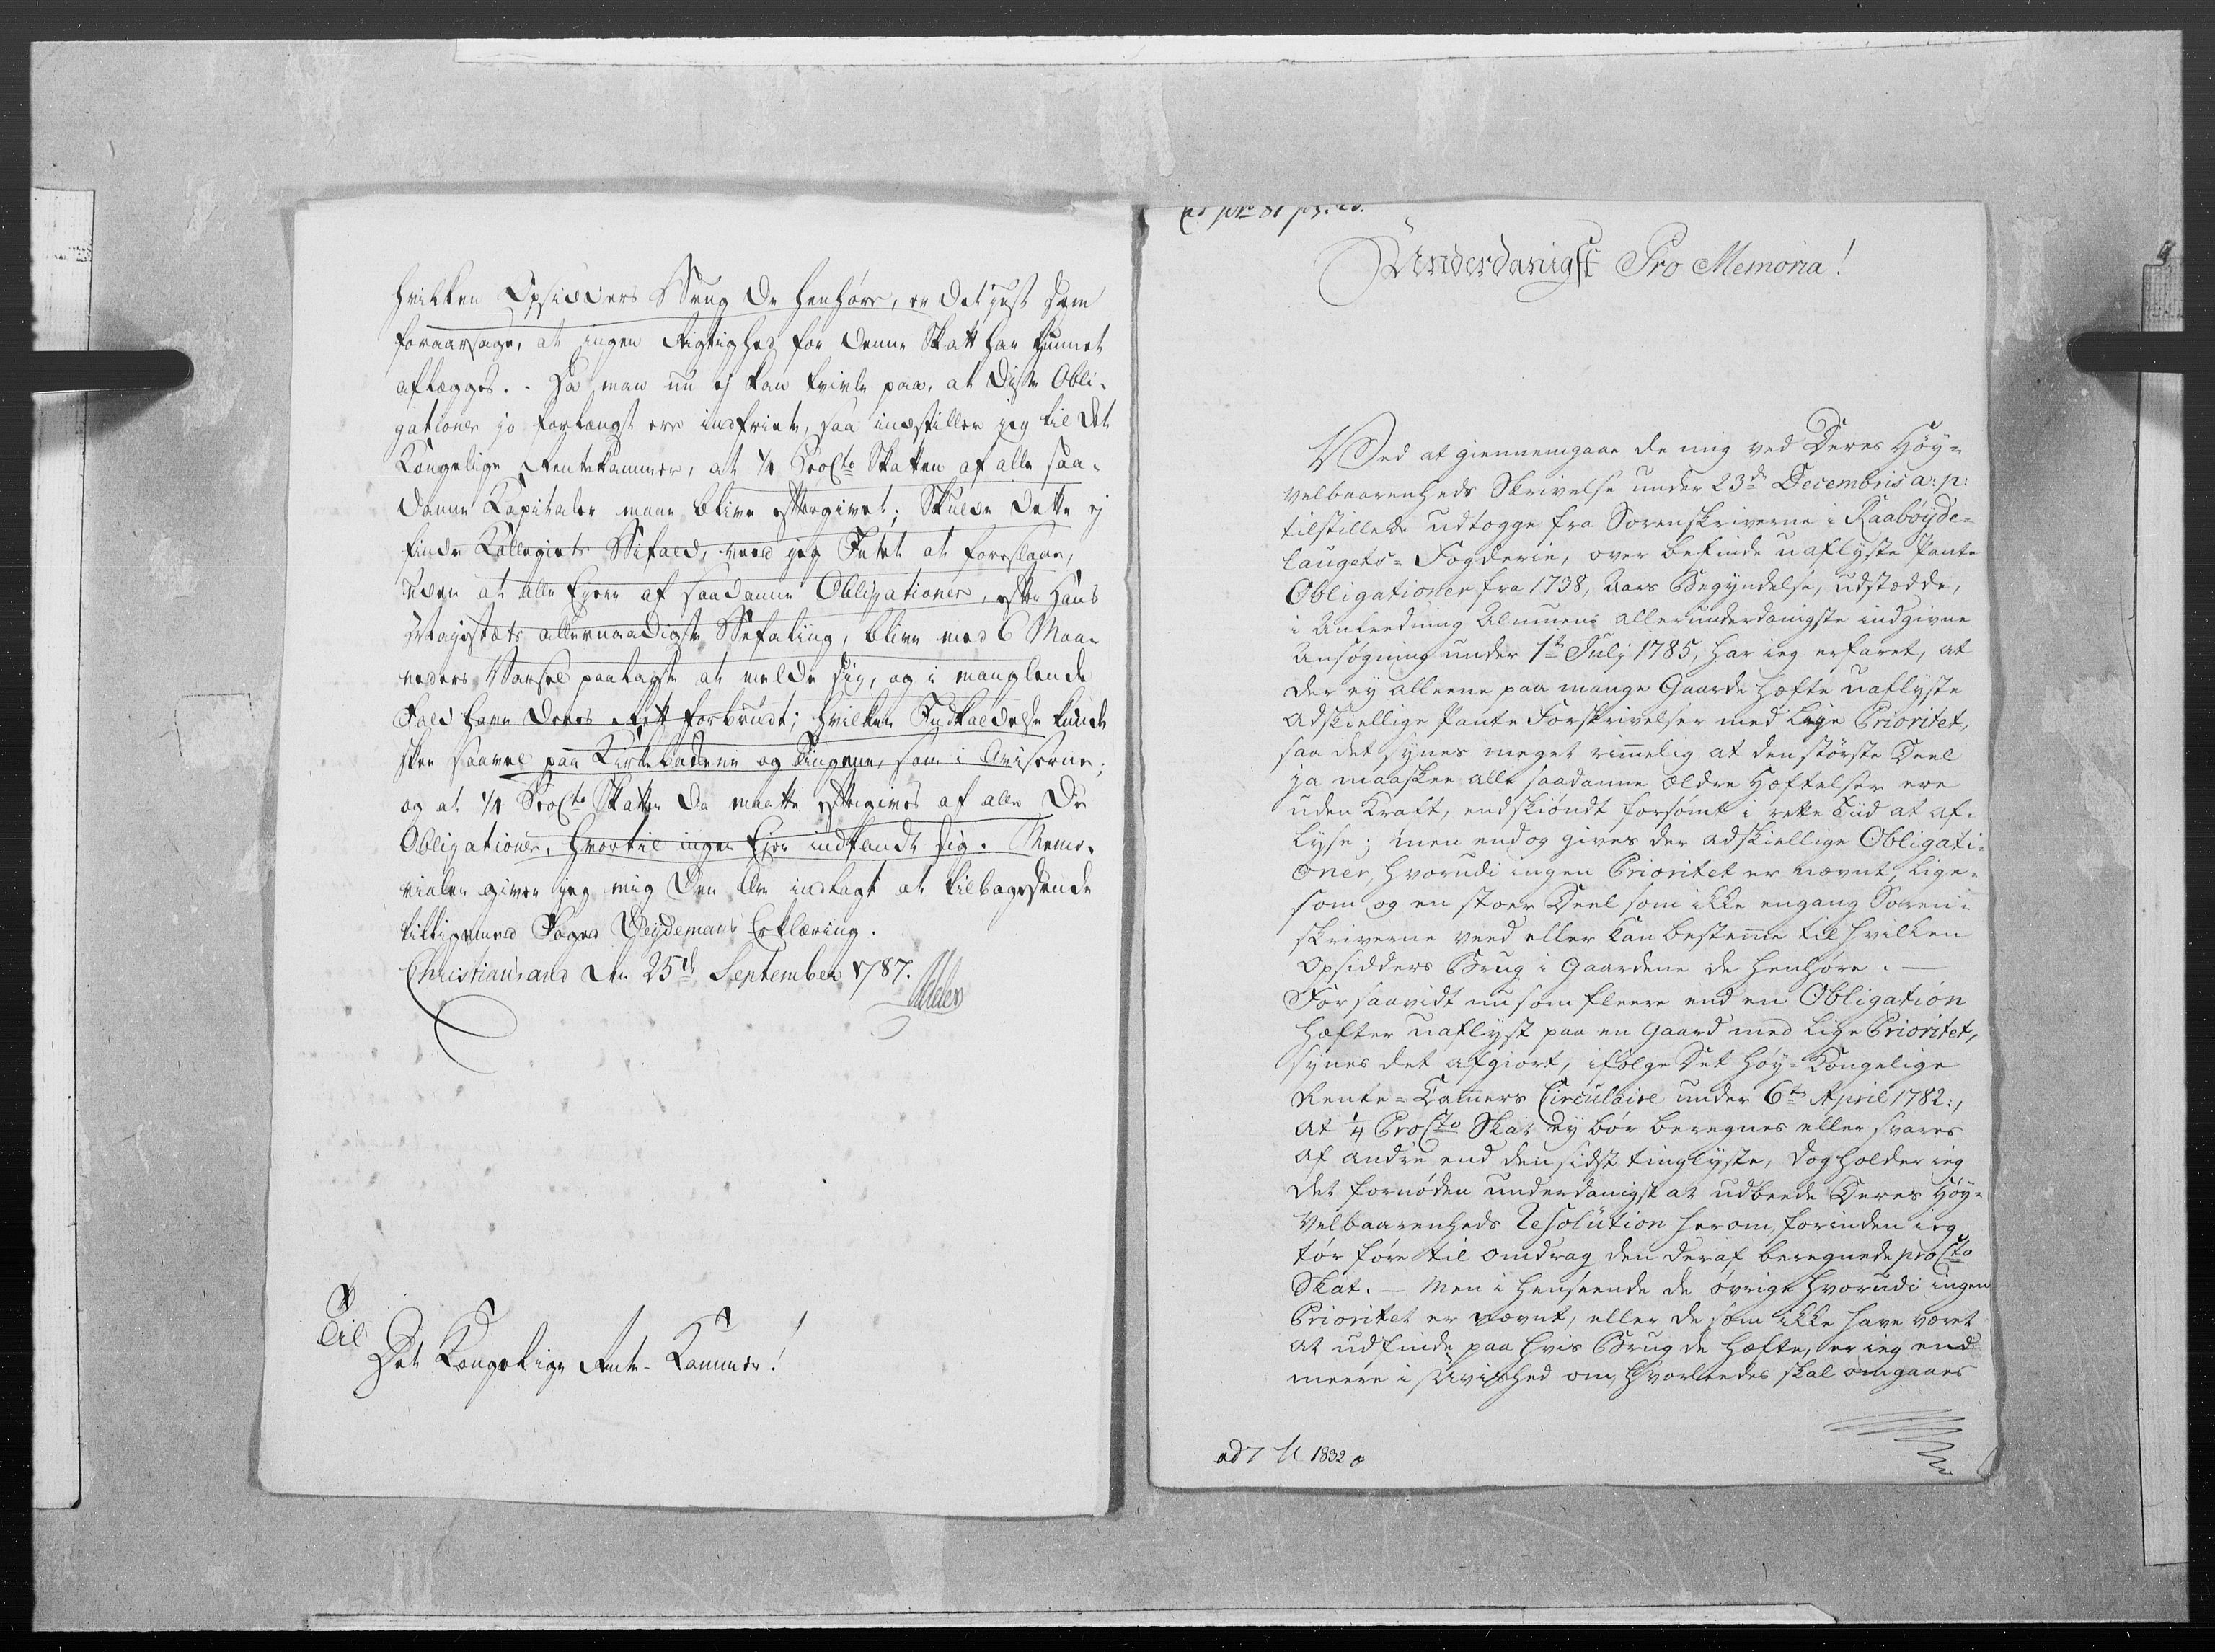 hvilken Opsidders Brug de henhøre, er det just som
foraarsage, at ingen Rigtighed for denne Skatt har kunnet
aflægges. - Da man nu ej kan tvivle paa, at disse Obli-
gationer jo forlængst ere indfriete, saa indstiller jeg til det
Kongelige Rentekammer, at 1/4 ProCto Skatten af alle saa-
danne Kapitaler maae blive eftergivet; Skulde dette ej
finde Kollegiets Bifald, veed jeg Intet at foreslaae,
uden at alle Ejere af saadanne Obligationer, efter Hans
Majestæts allernaadigste Befaling, blive med 6 Maa-
neders Varsel paalagte at melde sig, og i manglende
Fald have deres Rett forbrudt; hvilken Indkaldelse kunde
skee saavel paa Kirkebakkene og Tingene, som i Aviserne;
og at 1/4 ProCto Skatten da maatte eftergives af alle de
Obligationer, hvortil ingen Ejer indfandt sig. Memo-
rialen giver jeg mig den Ære indlagt at tilbagesende
tilligemed Foged Weydemans Erklæring.
Christiansand den 25de September 1787.
Adeler
Til
Det Kongelige Rente-Kammer!
Underdanigst Pro Memoria!
Ved at giennemgaae de mig ved Deres Høy=
velbaarenheds Skrivelse under 23de Decembris a: p:
tilstillede udtogge fra Sorenskriverne i Raabøyde=
laugets= Fogderie, over befinde uaflyste Pante
Obligationer fra 1738, Aars Begyndelse, udstædde,
i Anledning Almuens allerunderdanigste indgivne
Ansøgning under 1te Julij 1785, har ieg erfaret, at
der ey alleene paa mange Gaarde hæfte uaflyste
adskiellige Pante Forskrivelser med lige Prioritet,
saa det synes meget rimelig at den største Deel
ja maaskee alle saadanne ældre Hæftelser ere
uden Kraft, endskiøndt forsømt i rette Tiid at af-
lyse; men endog gives der adskiellige Obligati=
oner, hvorudi ingen Prioritet er nævnt, lige=
som og en stoer Deel som ikke engang Soren=
skriverne veed eller kan bestemme til hvilken
Opsidders Brug i Gaardene de henhøre. —
For saavidt nu som fleere end en Obligation
hæfter uaflyst paa en Gaard med lige Prioritet,
synes det afgiort, ifølge Det Høy= Kongelige
Rente= Camers Circulaire under 6te April 1782:,
at 1/4 ProCto Skat ey bør beregnes eller svares
af andre end den sidst tinglyste, dog holder ieg
det fornøden underdanigst at udbeede Deres Høy=
Velbaarenheds Resolution herom, forinden ieg
tør føre til omdrag den deraf beregnede proCto
Skat. — Men i henseende de øvrige hvorudi ingen
Prioritet er nævnt, eller de som ikke have været
at udfinde paa hvis Brug de hæfte, er ieg end
meere i uvished om, hvorledes skal omgaaes
ad 7 1832